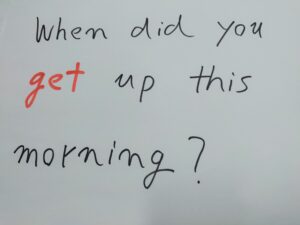 When did you
get up this
morning?